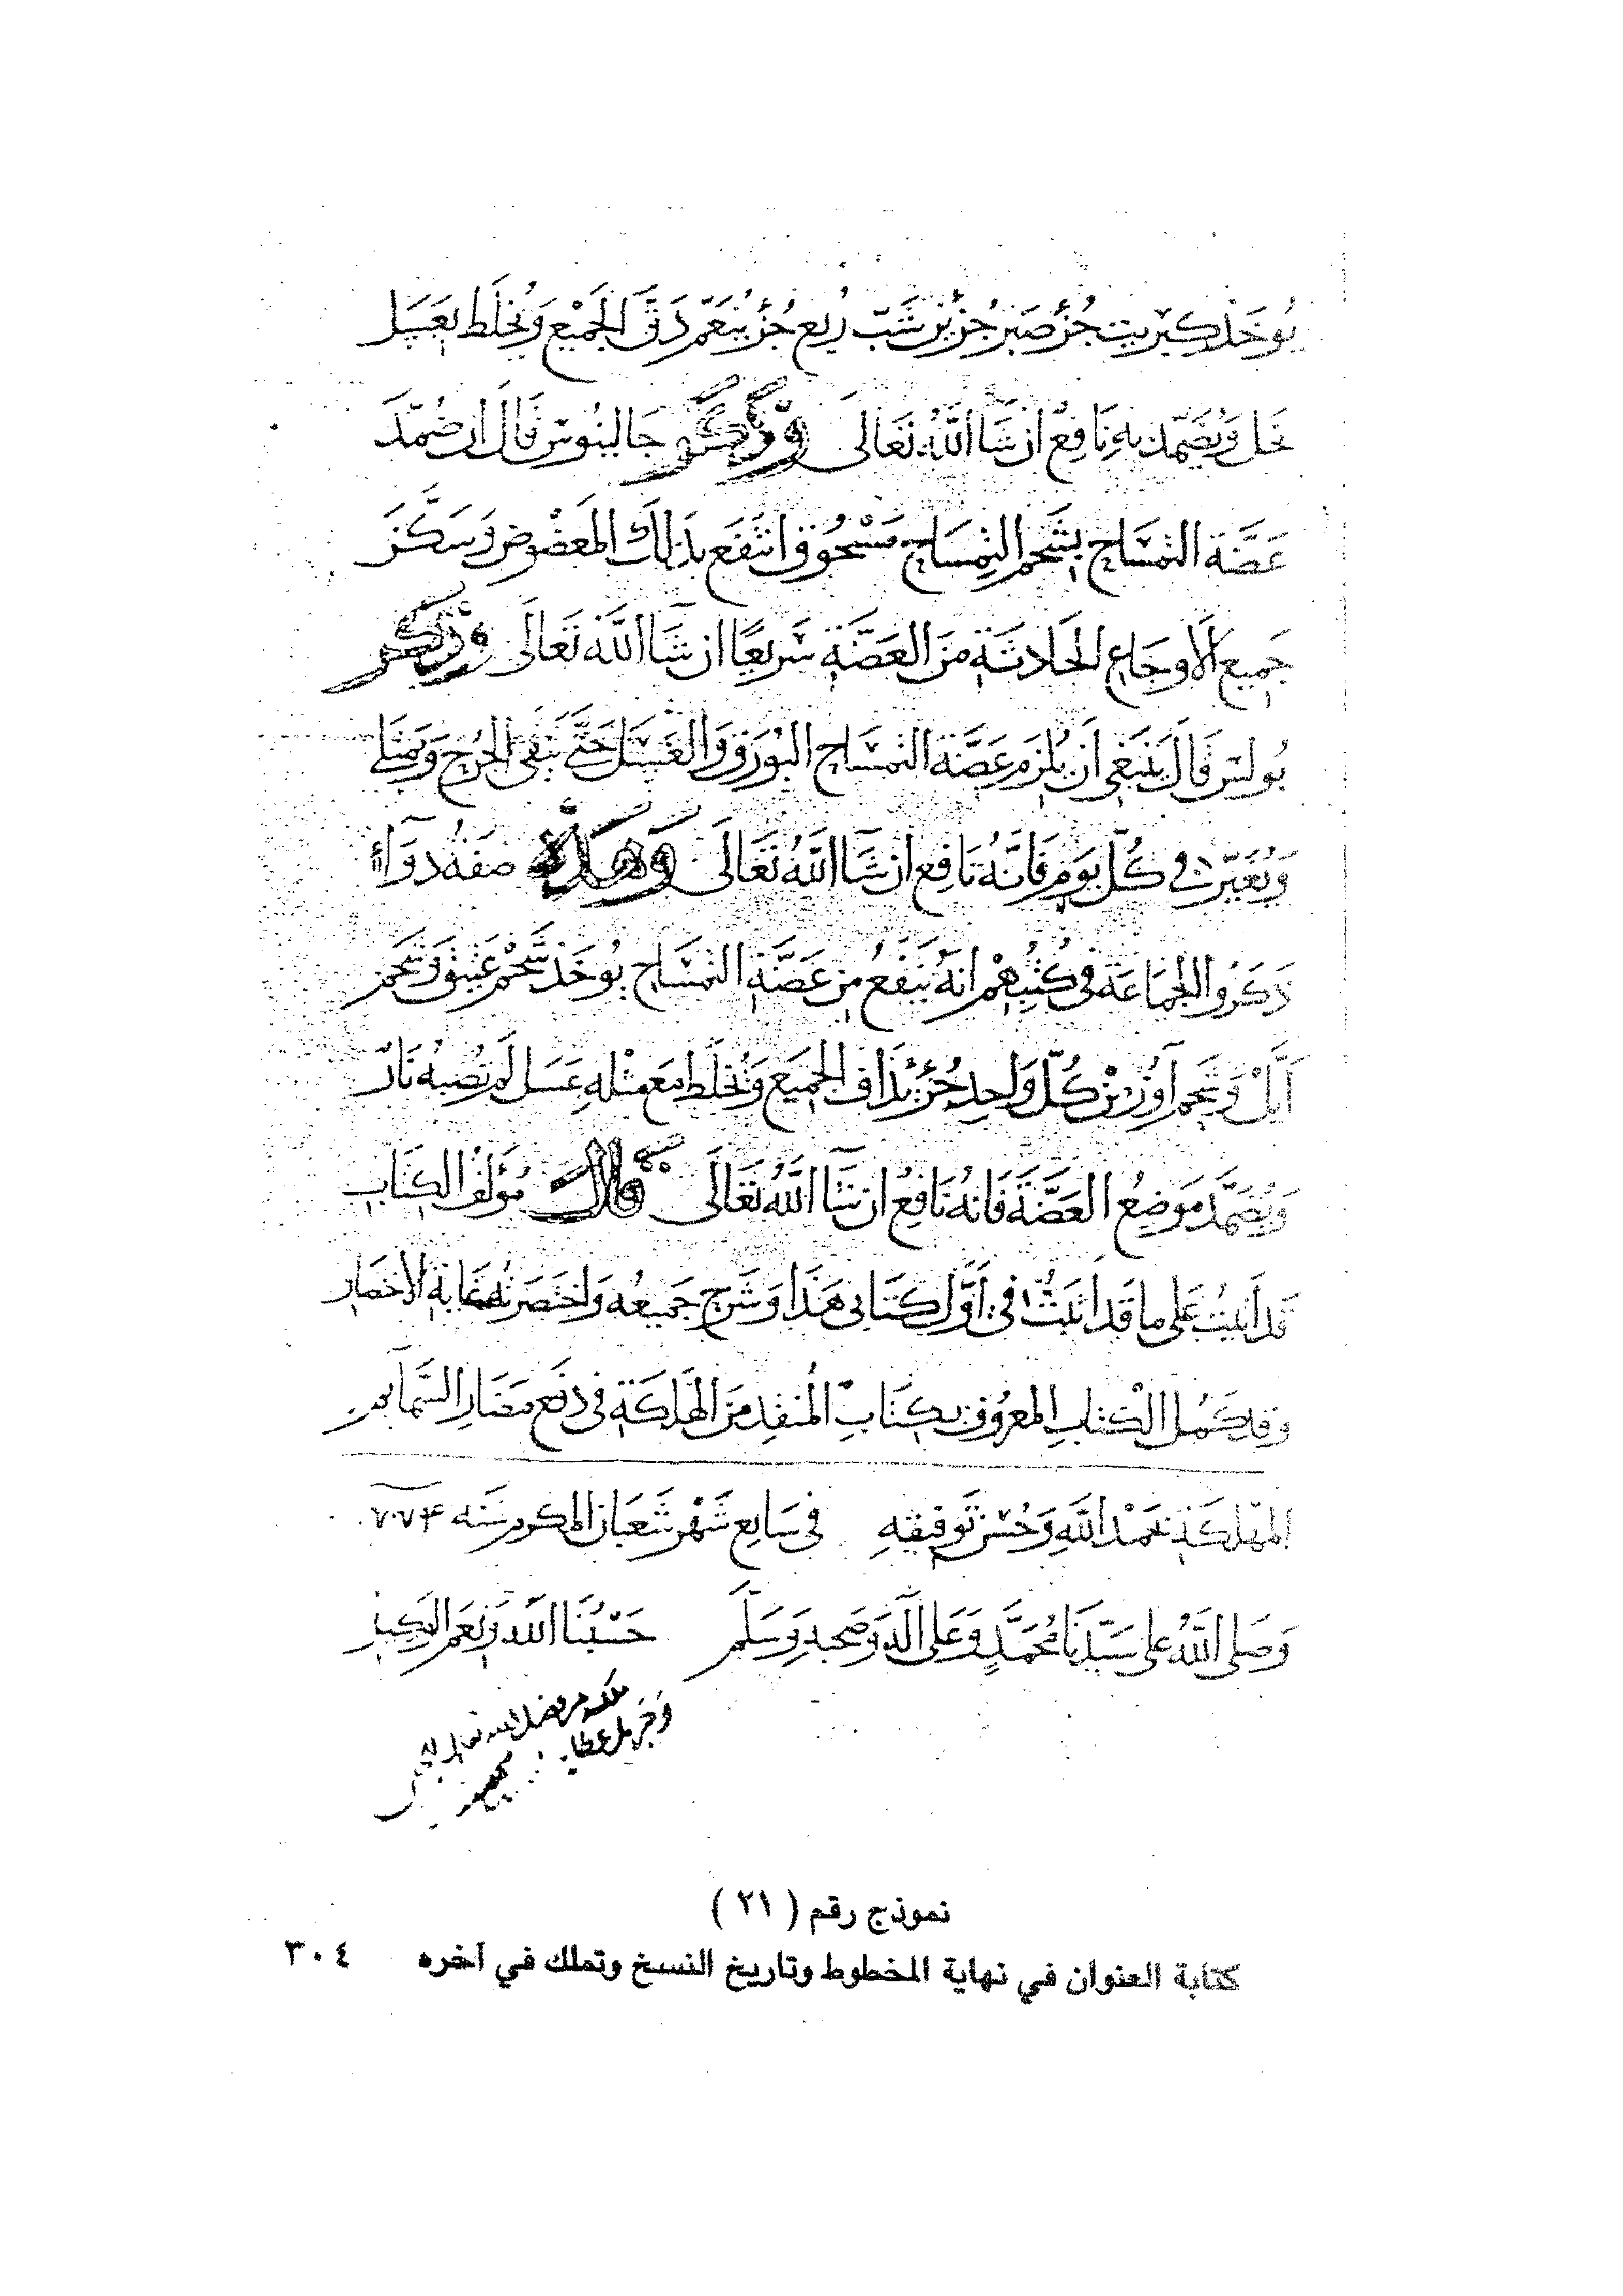 يُوخَذ كبريت جُزء صَبر جُزئين شَبّ رُبع جُزء يُنعَّم دَقّ الجَمْيع وَيُخلَط بعَسَل
نحل وَيُضَمّد بهِ نَافعٌ ان شَا اللَّه تعَالى وَذكَر جَالينُوس قَالَ ان ضُمّدَ
عَضَّة التمسَاح بشَحم التِمسَاح مَسْحُوق انتفَع بذَلك المَعضُوض وَسَكَّنَ
جَميع الاَوجَاع الحَادثَة منَ العَضَّة سَريعًا ان شَا اللَّه تَعَالَى وَذكر
بُولسْ قَالَ يَنبَغي اَن يُلزم عَضَّة التمسَاح البُورَق وَالعَسَل حَتَّى ينقَى الجُرح وَيمتلي
وَيُغَيّر في كُلّ يوَم فَانَّهُ نَافع ان شَا اللَّهُ تعَالَى وَهَذه صفَةُ دوَآء
ذكَرُوا الجمَاعَة في كُتُبهمْ انهُ يَنفَعُ من عَضَّة التمسَاح يُوخَذ شَحْم عَتيق وَشحم
اَيّلْ وَشحم آوز منْ كُلّ وَاحد جُزء يُذَاف الجميَع وَيُخلَط مَع مثْلهِ عَسَل لَم تصُبهُ نَارٌ
وَيُضَمَّد مَوضعُ العَضَّة فَانهُ نَافعٌ ان شَآ اللَّهُ تعَالَى قال مُؤلفُ الكتَاب
قَد اَتيتُ عَلى ما قَد اثبَتُّ في اَوَّل كتَابى هَذا وَشَرح جَميعُه وَاختَصَرتهُ غَايَة الاختصَار
وقد كمُل الكتَاب المعرُوف بكتَاب المُنقذ منَ الهَلَكَة في دفع مَضَار السَّمآيم
المُهلكَة بحَمْد اللَّهِ وَحُسْن تَوفيقهِ في سَابع شَهْر شَعبَان المكرم سَنَه
وَصَلى اللَّهُ عَلى سَيّدنَا مُحَمَّدٍ وَعَلى آله وَصَحبهِ وَسَلَّم حَسْبُنَا اللَّه وَنعمَ الوَكيل
ملكه من فضل الله تعالى
نموذج رقم ( ٢١ )
كتابة العنوان في نهاية المخطوط وتاريخ النسخ وتملك في آخره ٣٠٤